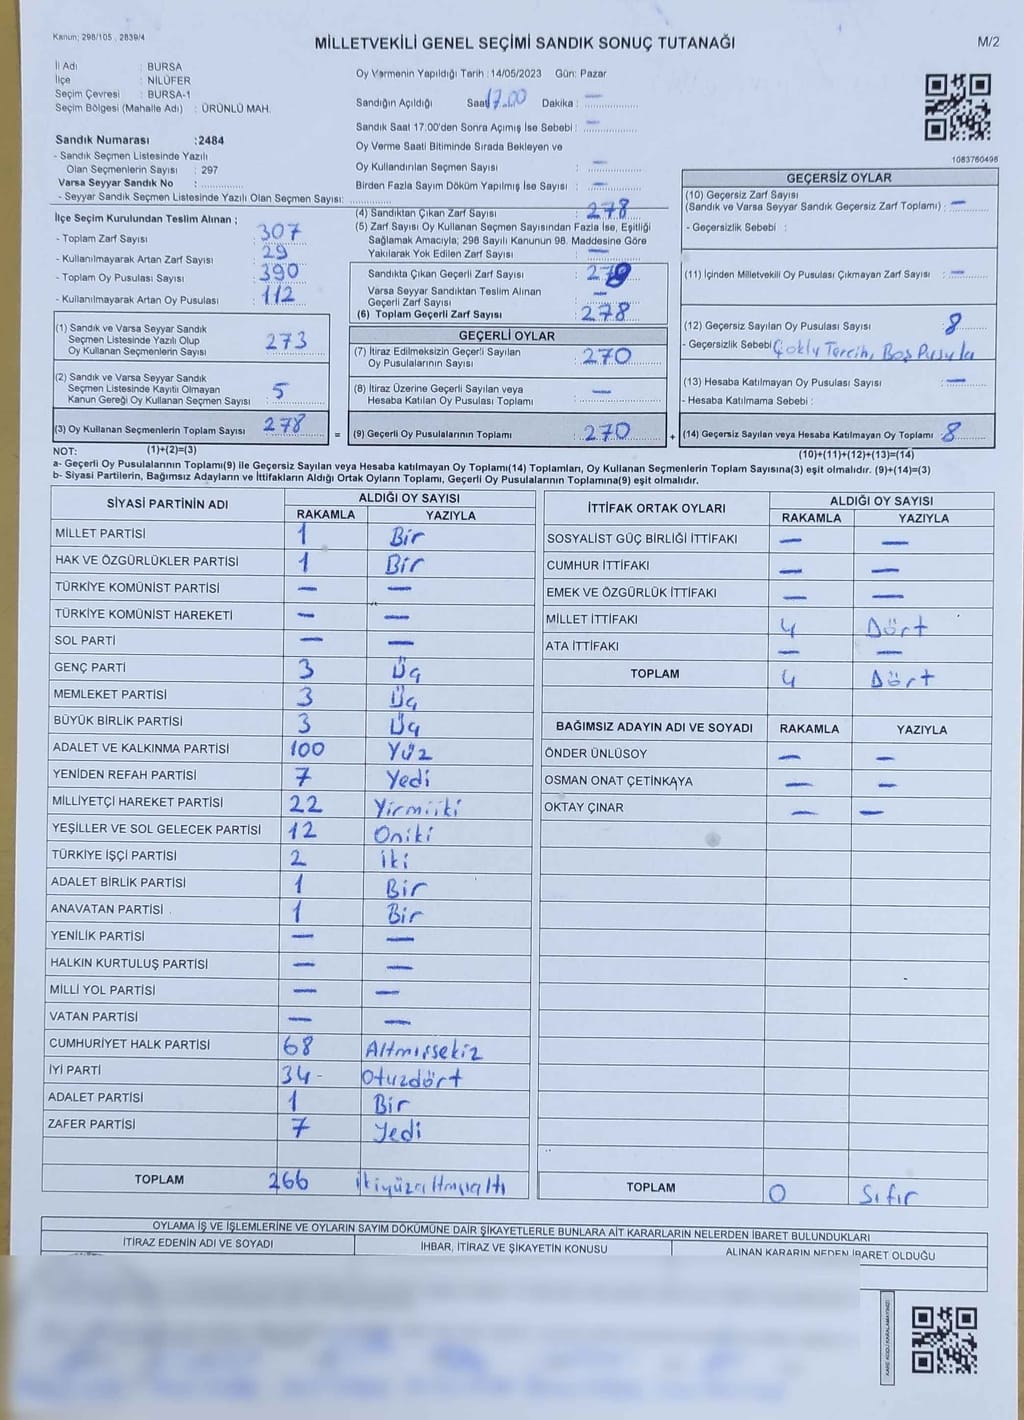 Kanun; 298/105 . 2839/4
MİLLETVEKİLİ GENEL SEÇİMİ SANDIK SONUÇ TUTANAĞI
M/2
İl Adı : BURSA
İlçe : NİLÜFER
Seçim Çevresi : BURSA-1
Seçim Bölgesi (Mahalle Adı) : ÜRÜNLÜ MAH.
Sandık Numarası :2484
- Sandık Seçmen Listesinde Yazılı
Olan Seçmenlerin Sayısı : 297
Varsa Seyyar Sandık No :
- Seyyar Sandık Seçmen Listesinde Yazılı Olan Seçmen Sayısı:
Oy Vermenin Yapıldığı Tarih : 14/05/2023 Gün: Pazar
Sandığın Açıldığı Saat 17.00 Dakika : —
Sandık Saat 17.00'den Sonra Açımış İse Sebebi : —
Oy Verme Saati Bitiminde Sırada Bekleyen ve
Oy Kullandırılan Seçmen Sayısı : —
Birden Fazla Sayım Döküm Yapılmış İse Sayısı : —
1083760496
İlçe Seçim Kurulundan Teslim Alınan ;
- Toplam Zarf Sayısı : 307
- Kullanılmayarak Artan Zarf Sayısı : 29
- Toplam Oy Pusulası Sayısı : 390
- Kullanılmayarak Artan Oy Pusulası : 112
(1) Sandık ve Varsa Seyyar Sandık
Seçmen Listesinde Yazılı Olup
Oy Kullanan Seçmenlerin Sayısı : 273
(2) Sandık ve Varsa Seyyar Sandık
Seçmen Listesinde Kayıtlı Olmayan
Kanun Gereği Oy Kullanan Seçmen Sayısı : 5
(3) Oy Kullanan Seçmenlerin Toplam Sayısı : 278
(4) Sandıktan Çıkan Zarf Sayısı : 278
(5) Zarf Sayısı Oy Kullanan Seçmen Sayısından Fazla İse, Eşitliği
Sağlamak Amacıyla; 298 Sayılı Kanunun 98. Maddesine Göre
Yakılarak Yok Edilen Zarf Sayısı : —
Sandıkta Çıkan Geçerli Zarf Sayısı : 278
Varsa Seyyar Sandıktan Teslim Alınan
Geçerli Zarf Sayısı : —
(6) Toplam Geçerli Zarf Sayısı : 278
GEÇERLİ OYLAR
(7) İtiraz Edilmeksizin Geçerli Sayılan
Oy Pusulalarının Sayısı : 270
(8) İtiraz Üzerine Geçerli Sayılan veya
Hesaba Katılan Oy Pusulası Toplamı : —
= (9) Geçerli Oy Pusulalarının Toplamı : 270
GEÇERSİZ OYLAR
(10) Geçersiz Zarf Sayısı
(Sandık ve Varsa Seyyar Sandık Geçersiz Zarf Toplamı) : —
- Geçersizlik Sebebi :
(11) İçinden Milletvekili Oy Pusulası Çıkmayan Zarf Sayısı : —
(12) Geçersiz Sayılan Oy Pusulası Sayısı : 8
- Geçersizlik Sebebi Çoklu Tercih, Boş Pusula
(13) Hesaba Katılmayan Oy Pusulası Sayısı : —
- Hesaba Katılmama Sebebi :
+ (14) Geçersiz Sayılan veya Hesaba Katılmayan Oy Toplamı : 8
NOT: (1)+(2)=(3) (10)+(11)+(12)+(13)=(14)
a- Geçerli Oy Pusulalarının Toplamı(9) ile Geçersiz Sayılan veya Hesaba katılmayan Oy Toplamı(14) Toplamları, Oy Kullanan Seçmenlerin Toplam Sayısına(3) eşit olmalıdır. (9)+(14)=(3)
b- Siyasi Partilerin, Bağımsız Adayların ve İttifakların Aldığı Ortak Oyların Toplamı, Geçerli Oy Pusulalarının Toplamına(9) eşit olmalıdır.
SİYASİ PARTİNİN ADI ALDIĞI OY SAYISI
RAKAMLA YAZIYLA
MİLLET PARTİSİ 1 Bir
HAK VE ÖZGÜRLÜKLER PARTİSİ 1 Bir
TÜRKİYE KOMÜNİST PARTİSİ — —
TÜRKİYE KOMÜNİST HAREKETİ — —
SOL PARTİ — —
GENÇ PARTİ 3 Üç
MEMLEKET PARTİSİ 3 Üç
BÜYÜK BİRLİK PARTİSİ 3 Üç
ADALET VE KALKINMA PARTİSİ 100 Yüz
YENİDEN REFAH PARTİSİ 7 Yedi
MİLLİYETÇİ HAREKET PARTİSİ 22 Yirmiiki
YEŞİLLER VE SOL GELECEK PARTİSİ 12 Oniki
TÜRKİYE İŞÇİ PARTİSİ 2 İki
ADALET BİRLİK PARTİSİ 1 Bir
ANAVATAN PARTİSİ 1 Bir
YENİLİK PARTİSİ — —
HALKIN KURTULUŞ PARTİSİ — —
MİLLİ YOL PARTİSİ — —
VATAN PARTİSİ — —
CUMHURİYET HALK PARTİSİ 68 Altmışsekiz
İYİ PARTİ 34- Otuzdört
ADALET PARTİSİ 1 Bir
ZAFER PARTİSİ 7 Yedi
TOPLAM 266 İkiyüzaltmışaltı
İTTİFAK ORTAK OYLARI ALDIĞI OY SAYISI
RAKAMLA YAZIYLA
SOSYALİST GÜÇ BİRLİĞİ İTTİFAKI — —
CUMHUR İTTİFAKI — —
EMEK VE ÖZGÜRLÜK İTTİFAKI — —
MİLLET İTTİFAKI 4 Dört
ATA İTTİFAKI — —
TOPLAM 4 Dört
BAĞIMSIZ ADAYIN ADI VE SOYADI RAKAMLA YAZIYLA
ÖNDER ÜNLÜSOY — —
OSMAN ONAT ÇETİNKAYA — —
OKTAY ÇINAR — —
TOPLAM 0 Sıfır
OYLAMA İŞ VE İŞLEMLERİNE VE OYLARIN SAYIM DÖKÜMÜNE DAİR ŞİKAYETLERLE BUNLARA AİT KARARLARIN NELERDEN İBARET BULUNDUKLARI
İTİRAZ EDENİN ADI VE SOYADI İHBAR, İTİRAZ VE ŞİKAYETİN KONUSU ALINAN KARARIN NEDEN İBARET OLDUĞU
KARE KODU KARALAMAYINIZ!